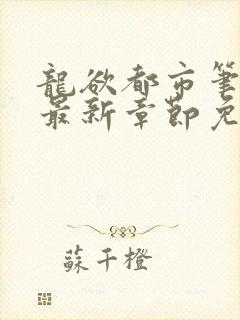 龍欲都市筆
最新章節免
蘇千橙